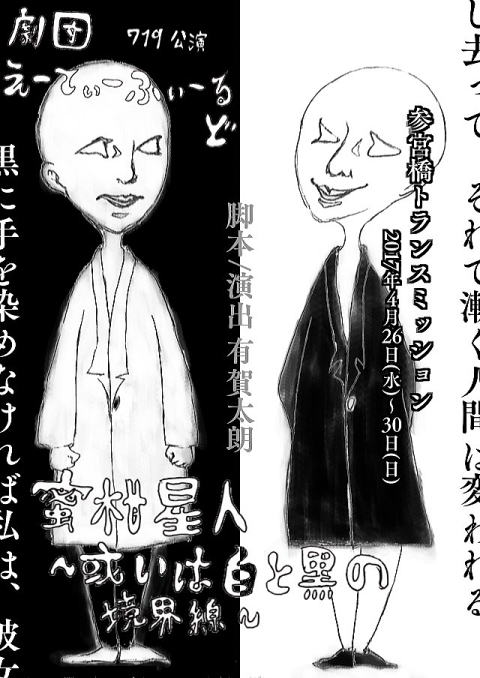 劇団 719公演
えーでぃーふぃーるど
し去って それで漸く人間は変われる
参宮橋トランスミッション
2017年4月26日(水)～30日(日)
脚本/演出 有賀太朗
黒に手を染めなければ私は、彼女
蜜柑星人
～或いは白と黒の
境界線～